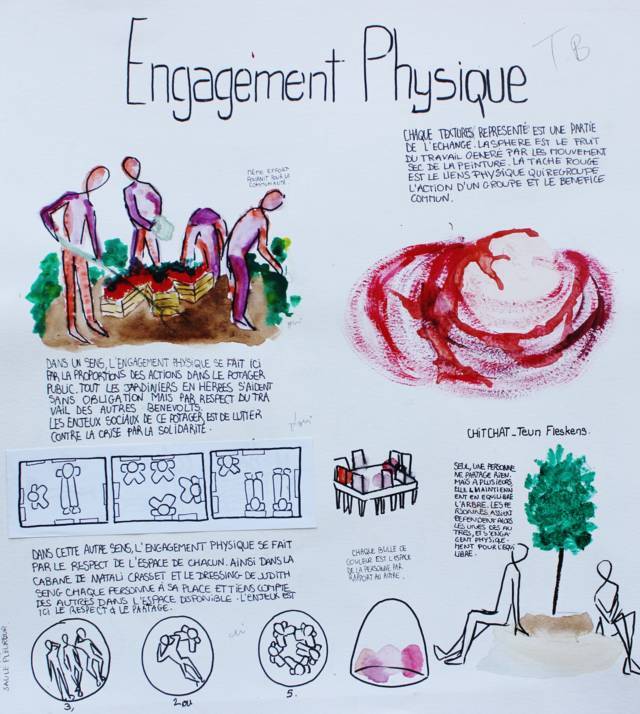 T.B
Engagement Physique
CHAQUE TEXTURES REPRESENTÉ EST UNE PARTIE
DE L'ECHANGE. LA SPHERE EST LE FRUIT
DU TRAVAIL GENERE PAR LES MOUVEMENT
SEC DE LA PEINTURE. LA TACHE ROUGE
EST LE LIENS PHYSIQUE QUI REGROUPE
L'ACTION D'UN GROUPE ET LE BENEFICE
COMMUN.
MÊME EFFORT
FOURNIT POUR LA
COMMUNAUTÉ.
DANS UN SENS, L'ENGAGEMENT PHYSIQUE SE FAIT ICI
PAR LA PROPORTIONS DES ACTIONS DANS LE POTAGER
PUBLIC. TOUT LES JARDINIERS EN HERBES S'AIDENT
SANS OBLIGATION MAIS PAR RESPECT DU TRA
VAIL DES AUTRES BENEVOLTS.
LES ENJEUX SOCIAUX DE CE POTAGER EST DE LUTTER
CONTRE LA CRISE PAR LA SOLIDARITÉ.
CHITCHAT_Teun Fleskens.
SEUL, UNE PERSONNE
NE PARTAGE RIEN.
MAIS A PLUSIEURS,
ELLE MAINTIENN
ENT EN EQUILIBRE
L'ARBRE. LES PE
RSONNES ASSIENT
DEPENDENT ALORS
LES UNES DES AU
TRES, ET S'ENGA
GENT PHYSIQUE
MENT POUR L'EQUI
LIBRE.
DANS CETTE AUTRE SENS, L'ENGAGEMENT PHYSIQUE SE FAIT
PAR LE RESPECT DE L'ESPACE DE CHACUN. AINSI DANS LA
CABANE DE MATALI CRASSET ET LE DRESSING DE JUDITH
SENG CHAQUE PERSONNE À SA PLACE ET TIENS COMPTE
DES AUTRES DANS L'ESPACE DISPONIBLE. L'ENJEUX EST
ICI LE RESPECT & LE PARTAGE.
CHAQUE BULLE DE
COULEUR EST L'ESPACE
DE LA PERSONNE PAR
RAPPORT AU AUTRE.
3,
2 ou
5.